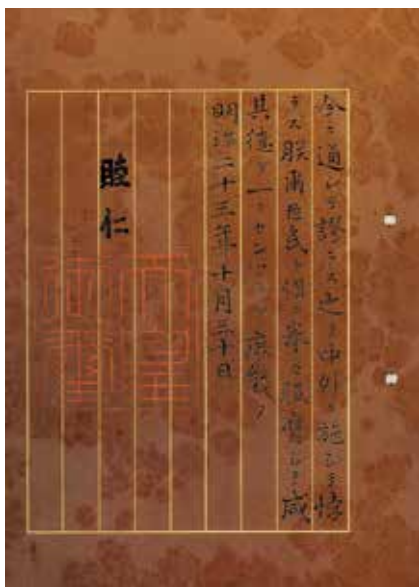 今ニ通シテ謬ラス之ヲ中外ニ施シテ悖
ラス朕爾臣民ト倶ニ拳々服膺シテ咸
其德ヲ一ニセンコトヲ庶幾フ
明治二十三年十月三十日
睦仁
天皇御璽